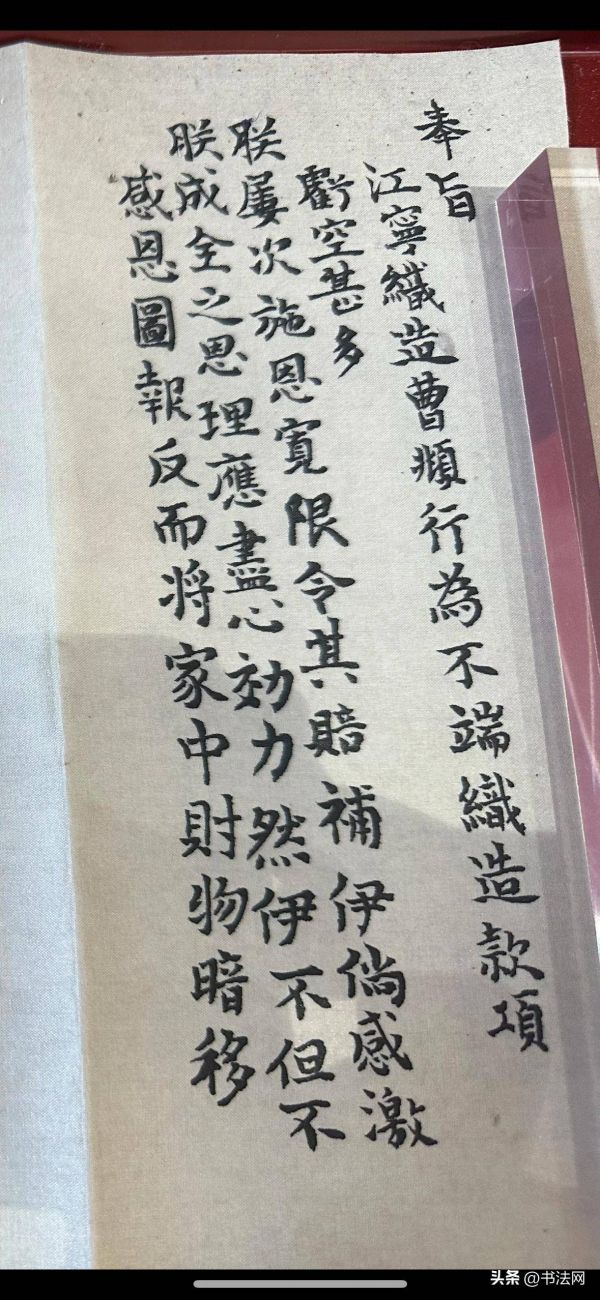 奉旨
江寧織造曹頫行為不端織造款項
虧空甚多
朕屢次施恩寬限令其賠補伊倘感激
朕成全之恩理應盡心効力然伊不但不
感恩圖報反而将家中財物暗移
头条 @书法网